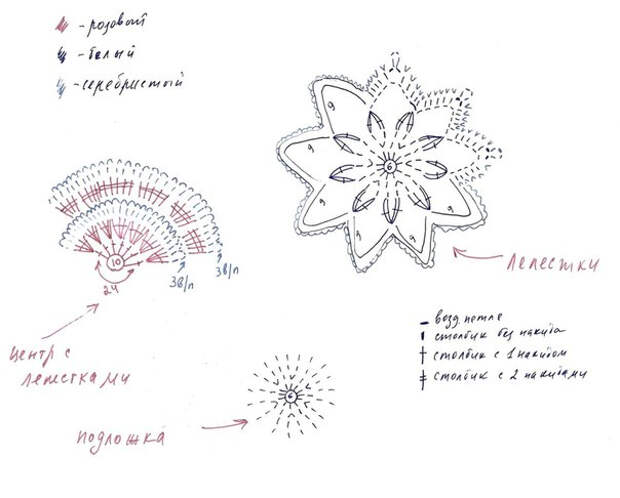 - розовый
- белый
- серебристый
9
9
9
9
9
9
9
6
Лепестки
10
24
3в/п
3в/п
центр с
лепестками
- возд. петля
столбик без накида
столбик с 1 накидом
столбик с 2 накидами
6
подложка